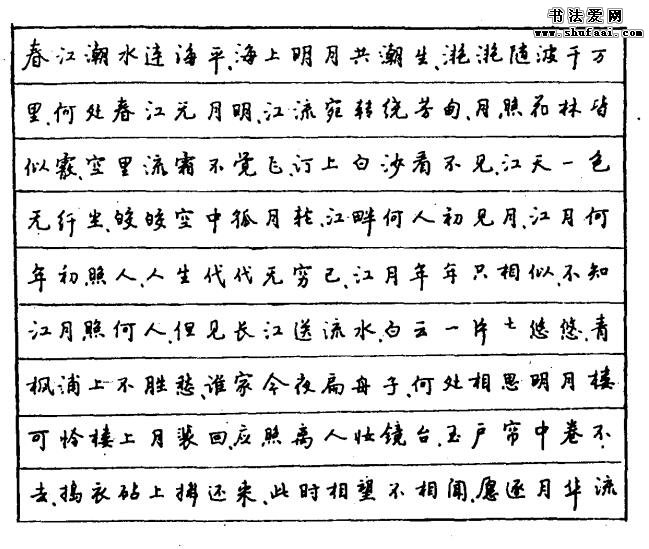 书法爱网
www.shufaai.com
春江潮水连海平,海上明月共潮生,滟滟随波千万
里,何处春江无月明,江流宛转绕芳甸,月照花林皆
似霰,空里流霜不觉飞,汀上白沙看不见,江天一色
无纤尘,皎皎空中孤月轮,江畔何人初见月,江月何
年初照人,人生代代无穷已,江月年年只相似,不知
江月照何人,但见长江送流水,白云一片去悠悠,青
枫浦上不胜愁,谁家今夜扁舟子,何处相思明月楼
可怜楼上月裴回,应照离人妆镜台,玉户帘中卷不
去,捣衣砧上拂还来,此时相望不相闻,愿逐月华流